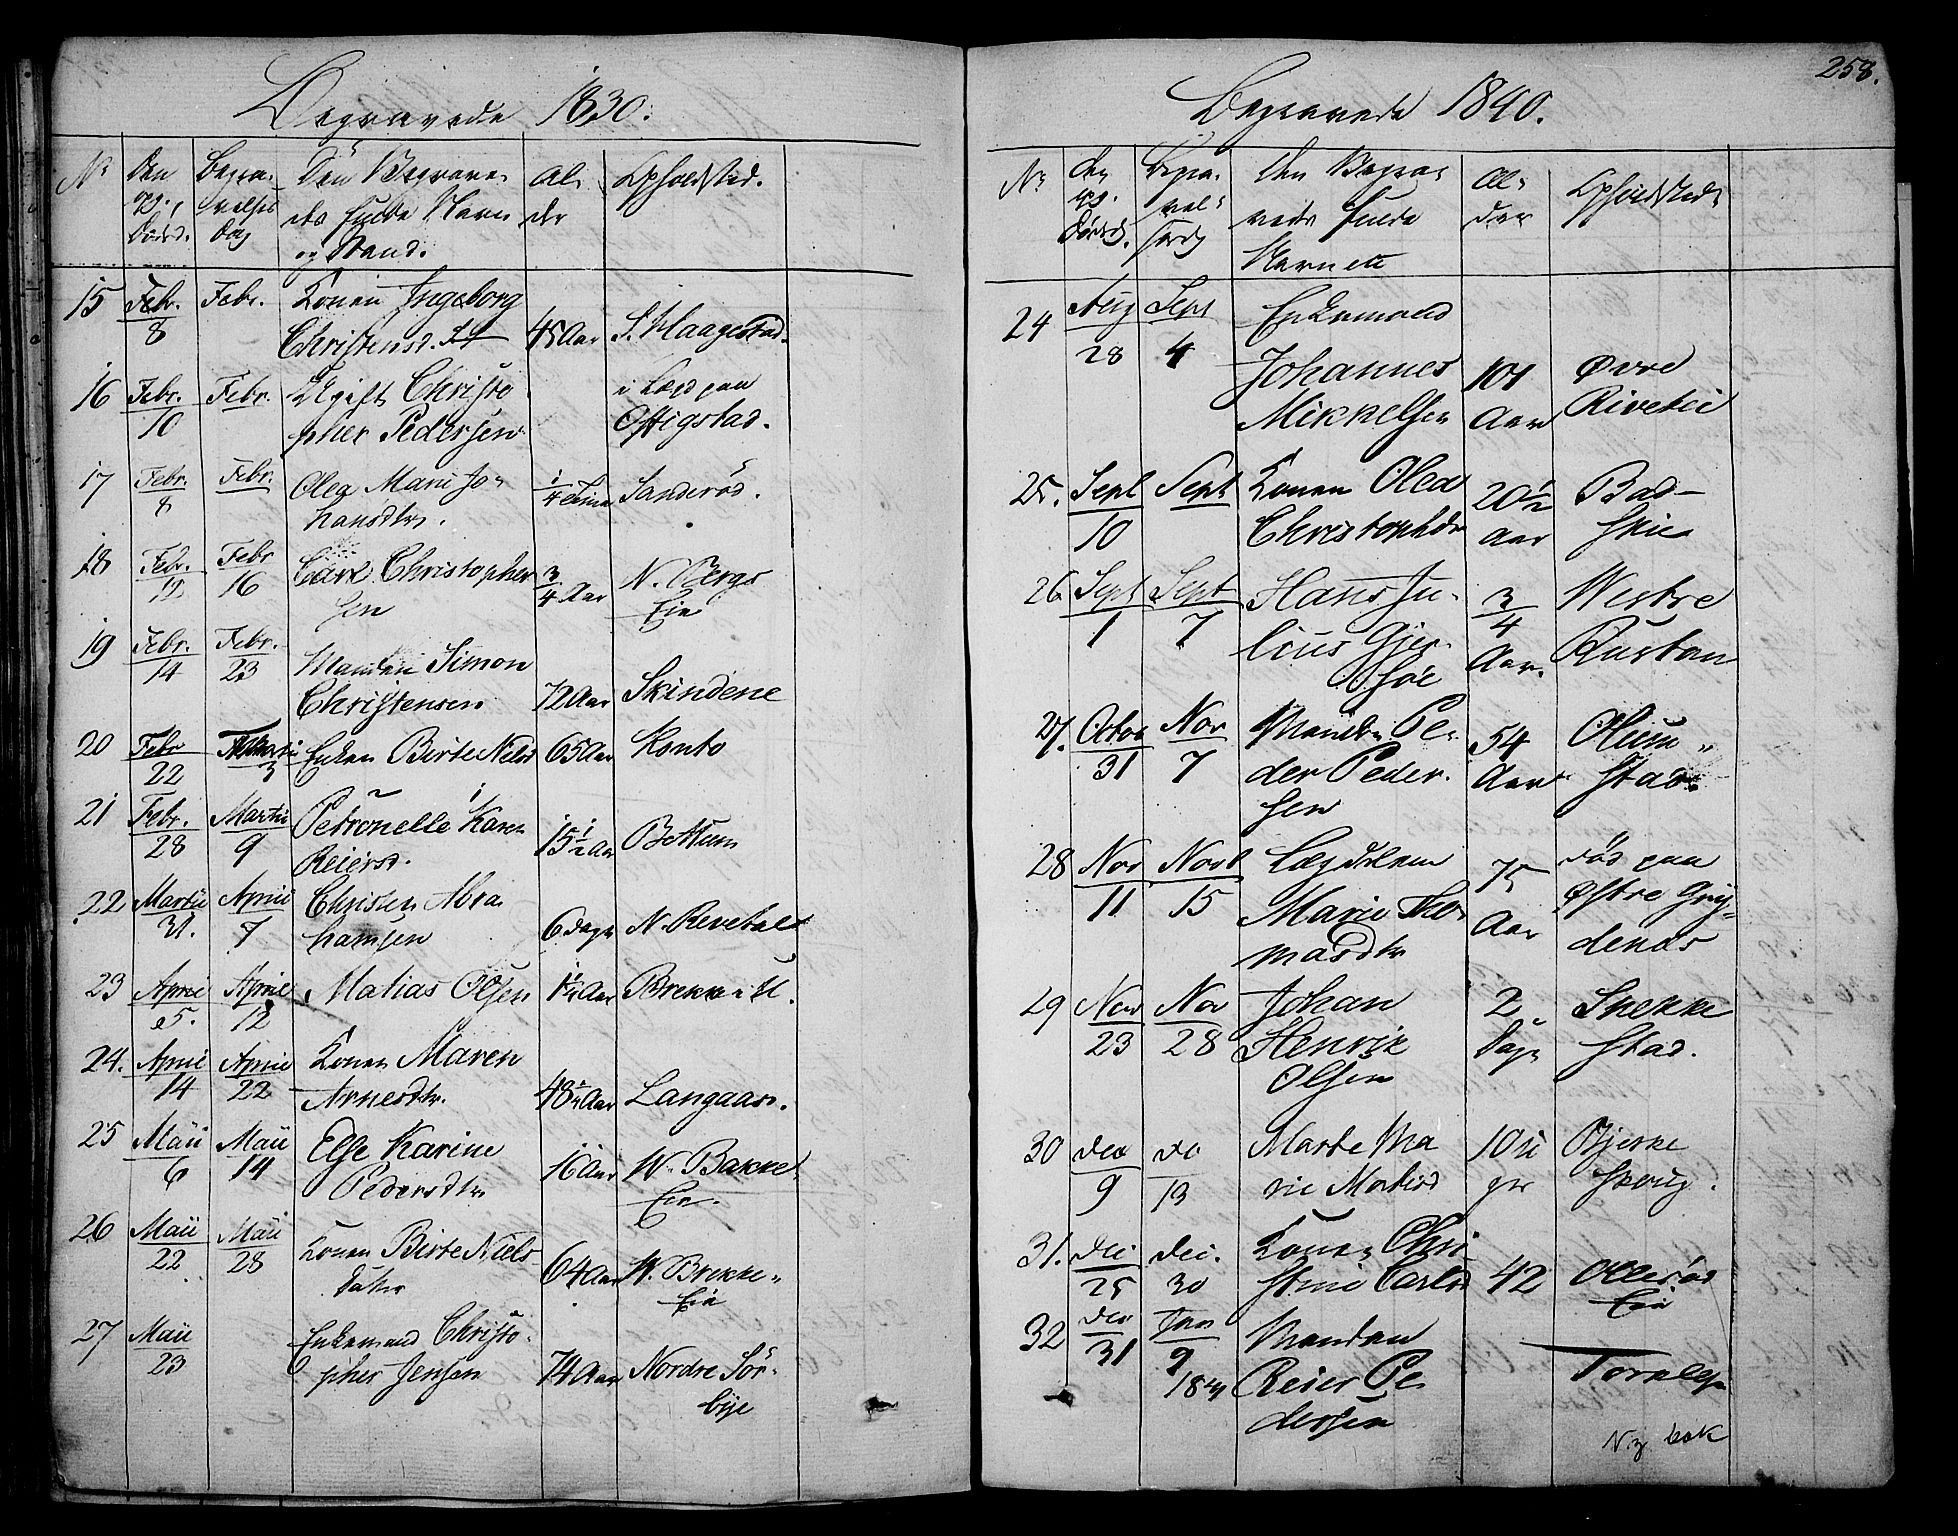 Begravede 1830.
No
Den
Døds d.
Begra-
velses
Dag
Den Begrave-
des fulde Navn
og Stand.
Al-
der
Opholdsted.
15 Febr. 8 Febr. Konen Ingeborg
Christensd. 45 Aar S. Haagestad.
16 Febr. 10 Febr. Ugift Christo
pher Pedersen i Lægd paa
Offigstad.
17 Febr. 8 Febr. Olea Marie Jo-
hansdtr. 1/4 Time Sanderød.
18 Febr. 12 Febr 16 Carl Christopher
sen 3/4 Aar N. Bergs
Eie
19 Febr. 14 Febr. 23 Manden Simon
Christensen 72 Aar Skindene
20 Febr 22 Martii 3 Enken Birte Nielsd 65 Aar Honto
21 Febr. 28 Martii 9 Petronelle Karen
Reiersd. 15 1/2 Aar Bettum
22 Martii 31. April 7 Christen Abra
hamsen 6 Dage N. Revetal
23 April 5. April 12 Matias Olsen Aar Brekke
24. April 14 April 22 Konen Maren
Arnesdtr. 48 Aar Langaas.
25 Maii 6 Maii 14 Else Karine
Pedersdtr 16 Aar W. Bakke
Eie.
26 Maii 22 Maii 28 Konen Birte Niels
datter 64 Aar W. Brekke
Eie
27 Maii 23 Enkemand Christo-
pher Jensen 74 Aar Nordre Sør-
bye
258.
Begravede 1840.
No
den
Dødsd.
Begra-
vel-
ses dg
Den Begra-
vedes fulde
Navn etc
Al-
der
Opholdsted
24 Aug 28 Sept 4 Enkemand
Johannes
Mikkelsen 101
Aar Øvre
Rivetei
25. Sept 10 Sept Konen Olea
Christophdr 20 1/2
Aar Bad-
skie
26 Sept 1 Sept 7 Hans Ju-
lius Gjer
søe 3/4
Aar. Westre
Rustan
27. Octor 31 Nov 7 Manden Pe-
der Peder-
sen 54
Aar Olum-
stad.
28 Nov 11 Novb 15 Lægdslem
Marie Tho-
masdtr 75
Aar død paa
Østre
29 Nov 23 Nov 28 Johan
Henrik
Olsen 2
Dage Snekke
stad.
30 Dec 9 do 13 Marte Ma
rie Matisd 10 u
ger Bjerke
skoug.
31. Dec 25 Dec. 30 Konen Chri
stine Carlsd 42 Ollerød
Eie
32 Dec 31 Jan 9
1841 Manden
Reier Pe
dersen
Ny bok